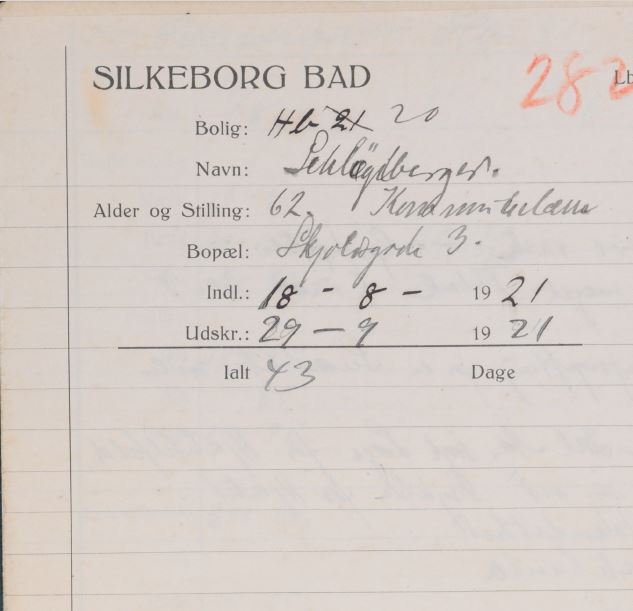 SILKEBORG BAD 282 Lb
Bolig: Hb 21 20
Navn:
Alder og Stilling: 62. Kommunelærer
Bopæl: Skjoldsgade 3.
Indl.: 18 - 8 - 1921
Udskr.: 29 - 9 1921
Ialt 43 Dage